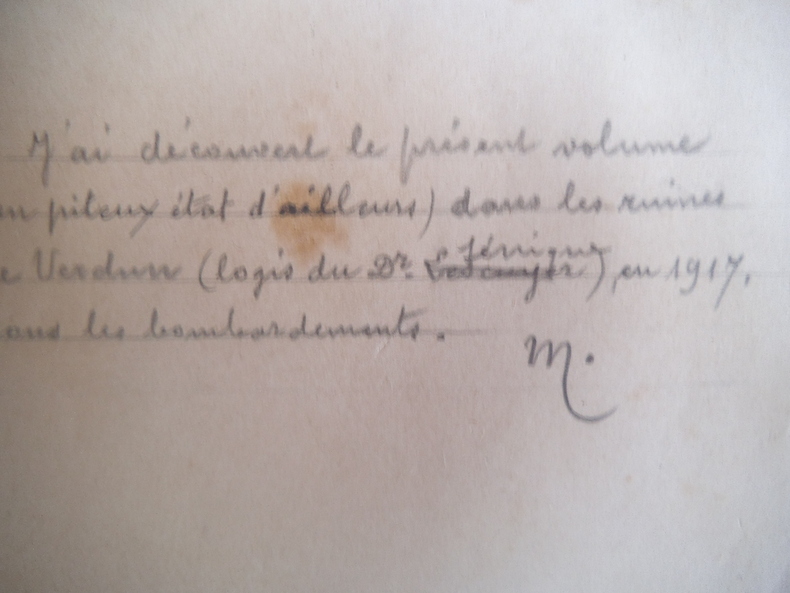 J'ai découvert le présent volume
n piteux état d'ailleurs) dans les ruines
e Verdun (logis du Dr. ), en 1917,
ous les bombardements.
M.